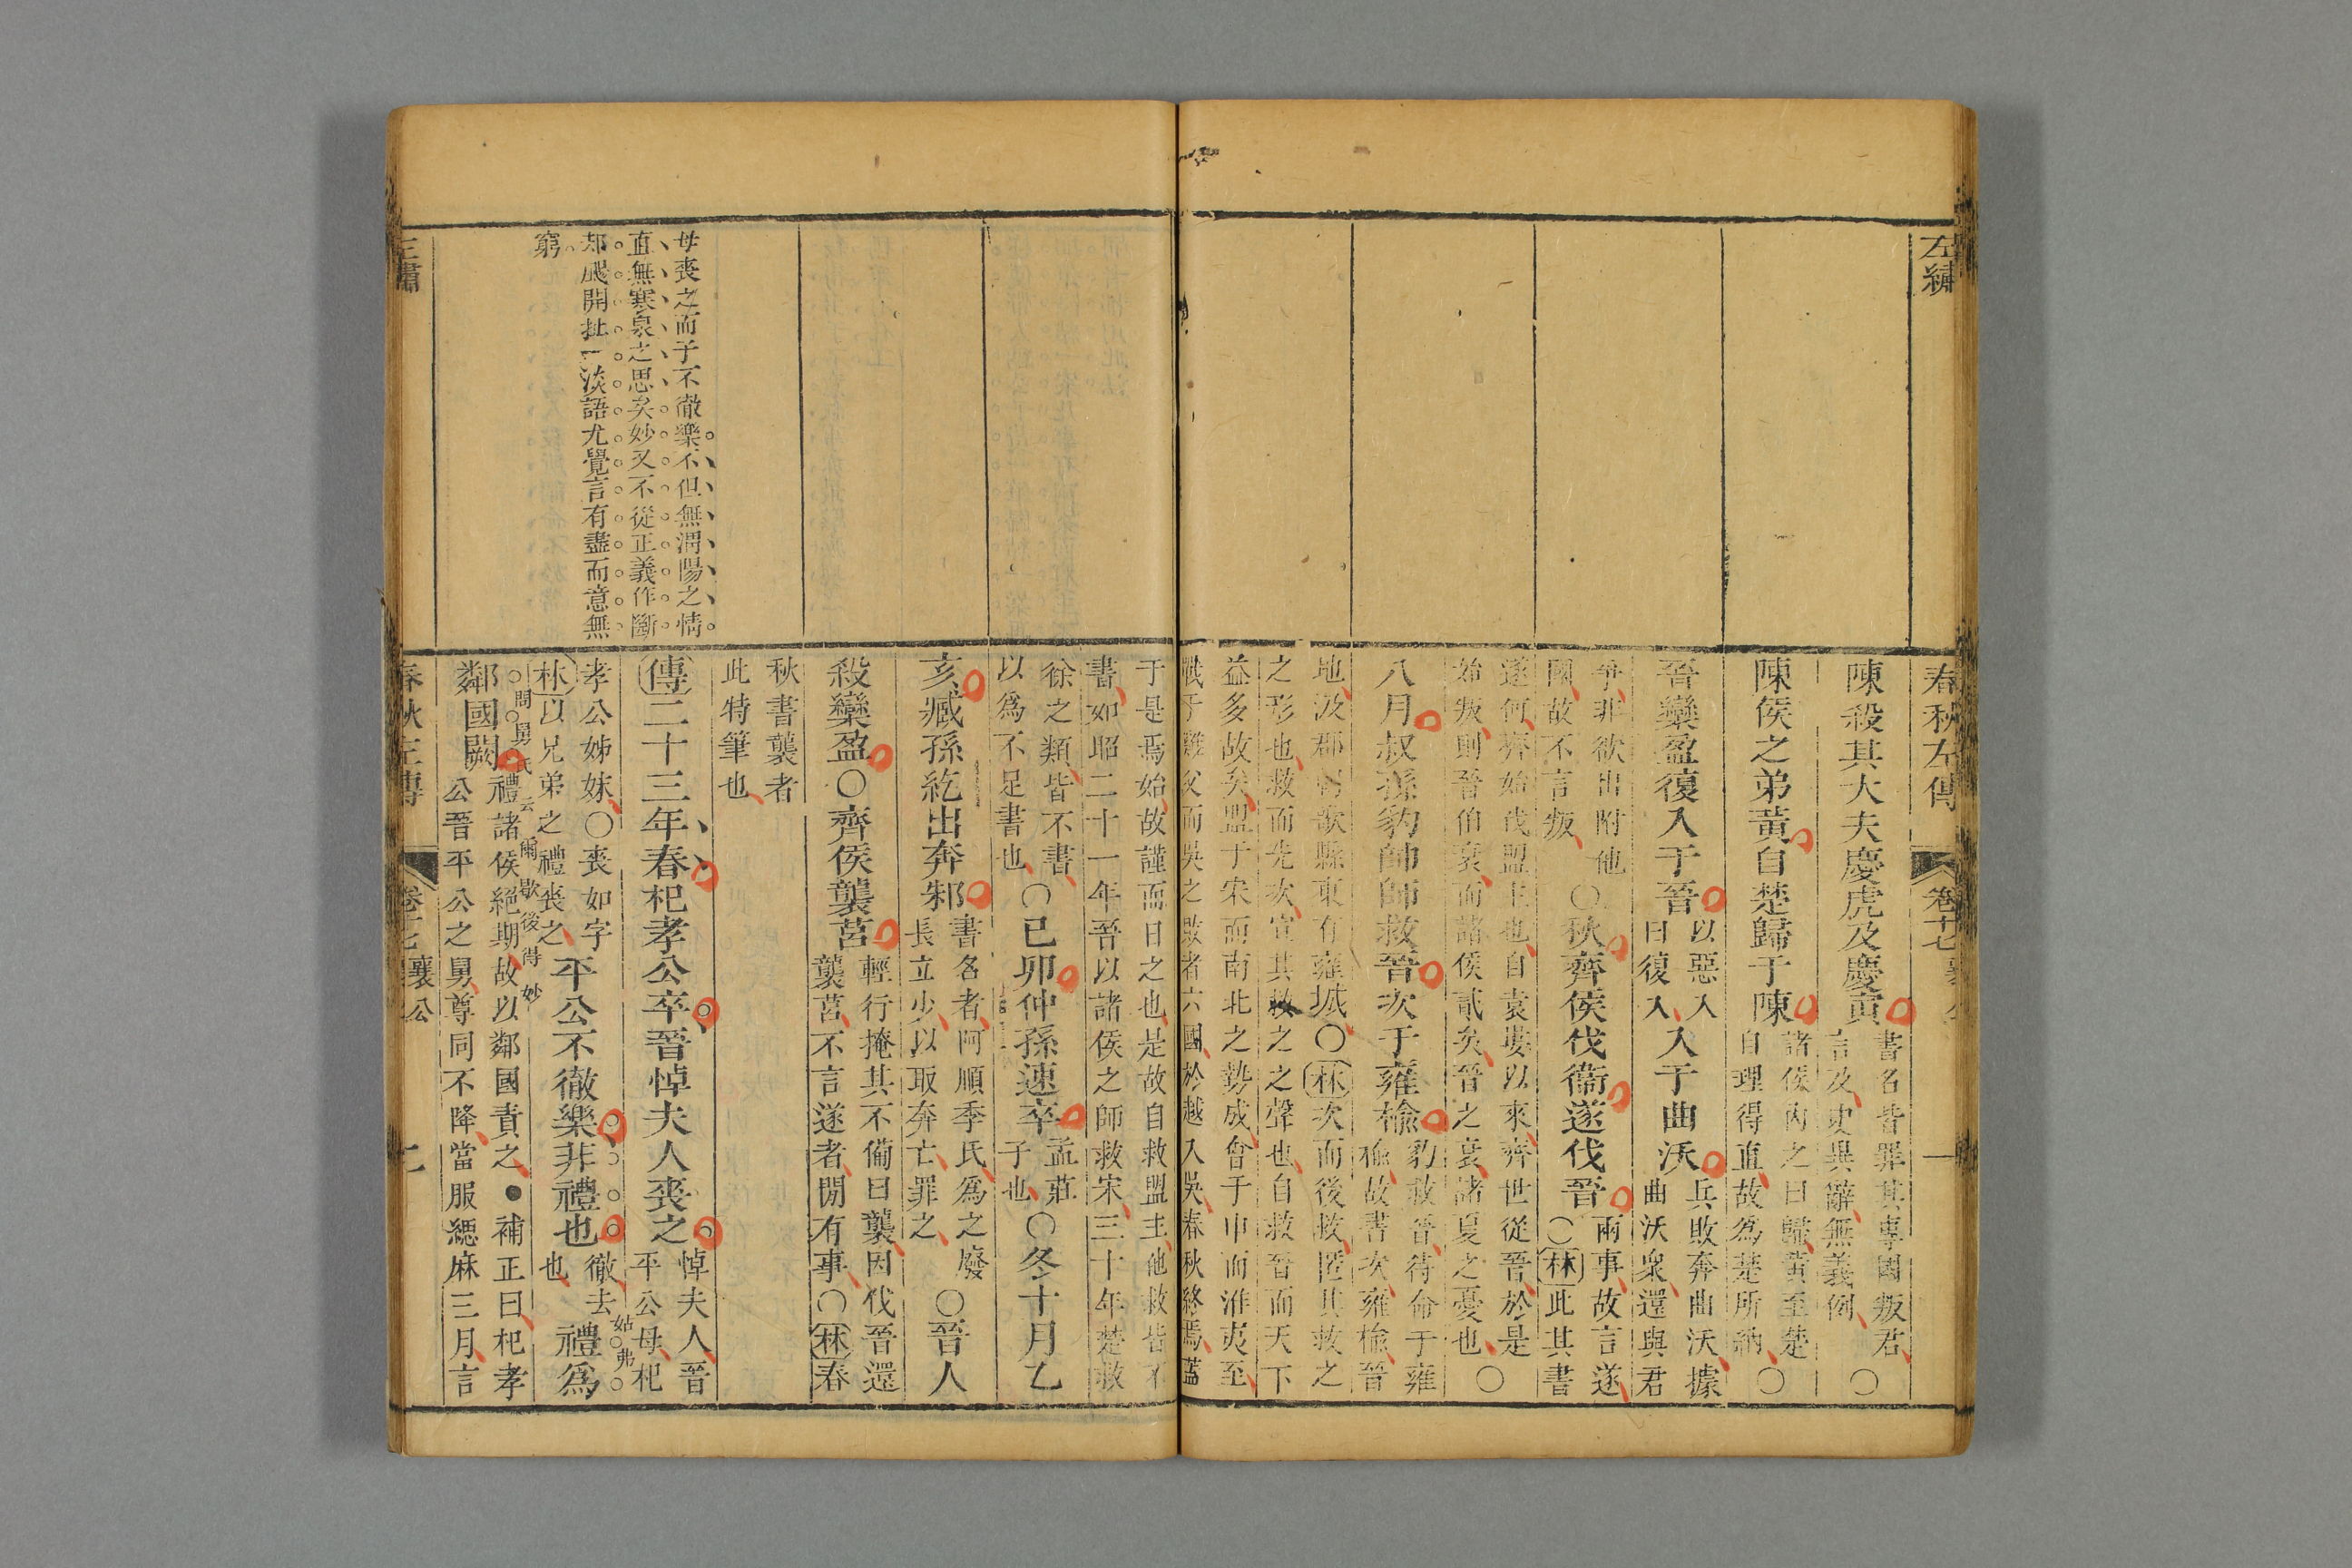 左繡
春秋左傳
卷十七
陳殺其大夫慶虎及慶寅 書名皆罪其專國叛君言及史異辭無義例 〇
陳侯之弟黃自楚歸于陳 諸侯納之曰歸黃至楚自理得直故爲楚所納 〇
晉欒盈復入于晉 以惡入曰復入 入于曲沃 兵敗奔曲沃據曲沃衆還與君
爭非欲出附他國故不言叛 〇秋齊侯伐衞遂伐晉 兩事故言遂〇林此其書
遂何齊始伐盟主也自袁婁以來齊世從晉於是始叛則晉伯衰而諸侯貳矣晉之衰諸夏之憂也 〇
八月叔孫豹帥師救晉次于雍榆 豹救晉待命于雍榆故書次雍榆晉
地汲郡朝歌縣東有雍城〇林次而後救匿其救之之形也救而先次宣其救之之聲也自救晉而天下
益多故矣盟于宋而南北之勢成會于申而淮夷至戕于雞父而吳之敗者六國於越入吳春秋終焉蓋
于是焉始故謹而日之也是故自救盟主他救皆不書如昭二十一年晉以諸侯之師救宋三十年楚救
徐之類皆不書以爲不足書也 〇已卯仲孫速卒 孟莊子也 〇冬十月乙
亥臧孫紇出奔邾 書名者阿順季氏爲之廢長立少以取奔亡罪之 〇晉人
殺欒盈〇齊侯襲莒 輕行掩其不備曰襲因伐晉還襲莒不言遂者閒有事〇林春
秋書襲者此特筆也
傳二十三年春杞孝公卒晉悼夫人喪之 悼夫人晉平公母杞
孝公姊妹〇喪如字林以兄弟之禮喪之 平公不徹樂非禮也 徹去也 禮爲
姑〇弗〇
鄰國闕 禮諸侯絕期故以鄰國責之●補正曰杞孝公晉平公之舅尊同不降當服緦麻三月言
〇問〇舅氏云爾歇後得妙
母喪之而子不徹樂不但無渭陽之情
直無寒泉之思矣妙又不從正義作斷
却颺開扯一淡語尤覺言有盡而意無
窮
春秋左傳
卷十七 襄公